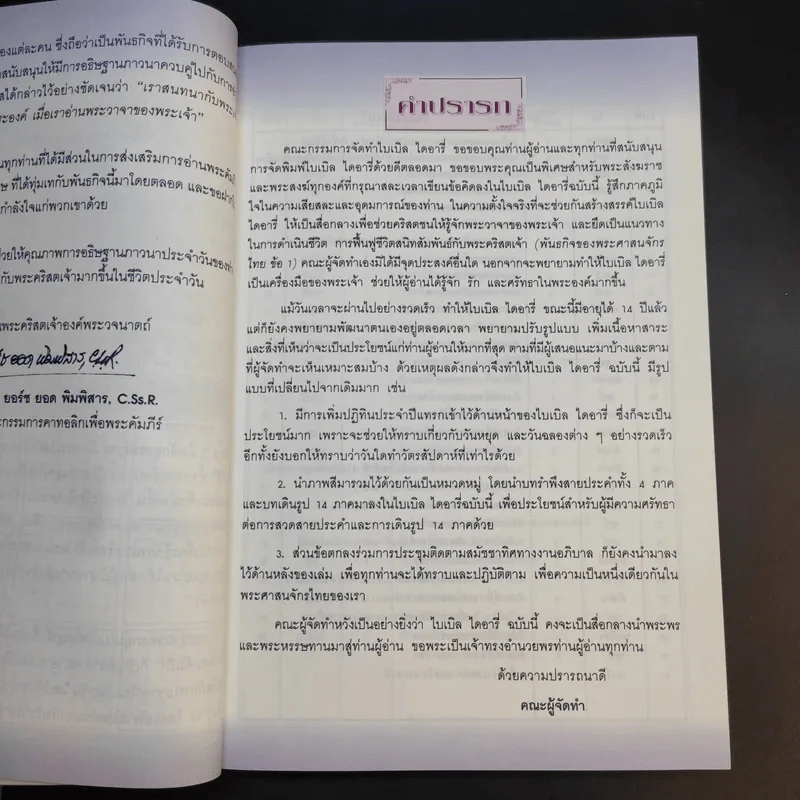 องแต่ละคน ซึ่งถือว่าเป็นพันธกิจที่ได้รับการตอบ
สนับสนุนให้มีการอธิษฐานภาวนาควบคู่ไปกับการ
สได้กล่าวไว้อย่างชัดเจนว่า "เราสนทนากับพระ
ะองค์ เมื่อเราอ่านพระวาจาของพระเจ้า"
นทุกท่านที่ได้มีส่วนในการส่งเสริมการอ่านพระคัม
ษ ที่ได้ทุ่มเทกับพันธกิจนี้มาโดยตลอด และขอฝาก
กำลังใจแก่พวกเขาด้วย
วยให้คุณภาพการอธิษฐานภาวนาประจำวันของท่า
กับพระคริสตเจ้ามากขึ้นในชีวิตประจำวัน
นพระคริสตเจ้าองค์พระวจนาตถ์
ยอร์ช ยอด พิมพิสาร, C.Ss.R.
ะกรรมการคาทอลิกเพื่อพระคัมภีร์
คำปรารภ
คณะกรรมการจัดทำไบเบิล ไดอารี่ ขอขอบคุณท่านผู้อ่านและทุกท่านที่สนับสนุน
การจัดพิมพ์ไบเบิล ไดอารี่ด้วยดีตลอดมา ขอขอบพระคุณเป็นพิเศษสำหรับพระสังฆราช
และพระสงฆ์ทุกองค์ที่กรุณาสละเวลาเขียนข้อคิดลงในไบเบิล ไดอารี่ฉบับนี้ รู้สึกภาคภูมิ
ใจในความเสียสละและอุดมการณ์ของท่าน ในความตั้งใจจริงที่จะช่วยกันสร้างสรรค์ไบเบิล
ไดอารี่ ให้เป็นสื่อกลางเพื่อช่วยคริสตชนให้รู้จักพระวาจาของพระเจ้า และยึดเป็นแนวทาง
ในการดำเนินชีวิต การฟื้นฟูชีวิตสนิทสัมพันธ์กับพระคริสตเจ้า (พันธกิจของพระศาสนจักร
ไทย ข้อ 1) คณะผู้จัดทำเองมิได้มีจุดประสงค์อื่นใด นอกจากจะพยายามทำให้ไบเบิล ไดอารี่
เป็นเครื่องมือของพระเจ้า ช่วยให้ผู้อ่านได้รู้จัก รัก และศรัทธาในพระองค์มากขึ้น
แม้วันเวลาจะผ่านไปอย่างรวดเร็ว ทำให้ไบเบิล ไดอารี่ ขณะนี้มีอายุได้ 14 ปีแล้ว
แต่ก็ยังคงพยายามพัฒนาตนเองอยู่ตลอดเวลา พยายามปรับรูปแบบ เพิ่มเนื้อหาสาระ
และสิ่งที่เห็นว่าจะเป็นประโยชน์แก่ท่านผู้อ่านให้มากที่สุด ตามที่มีผู้เสนอแนะมาบ้างและตาม
ที่ผู้จัดทำจะเห็นเหมาะสมบ้าง ด้วยเหตุผลดังกล่าวจึงทำให้ไบเบิล ไดอารี่ ฉบับนี้ มีรูป
แบบที่เปลี่ยนไปจากเดิมมาก เช่น
1. มีการเพิ่มปฏิทินประจำปีแทรกเข้าไว้ด้านหน้าของไบเบิล ไดอารี่ ซึ่งก็จะเป็น
ประโยชน์มาก เพราะจะช่วยให้ทราบเกี่ยวกับวันหยุด และวันฉลองต่าง ๆ อย่างรวดเร็ว
อีกทั้งยังบอกให้ทราบว่าวันใดทำวัตรสัปดาห์ที่เท่าไรด้วย
2. นำภาพสีมารวมไว้ด้วยกันเป็นหมวดหมู่ โดยนำบทรำพึงสายประคำทั้ง 4 ภาค
และบทเดินรูป 14 ภาคมาลงในไบเบิล ไดอารี่ฉบับนี้ เพื่อประโยชน์สำหรับผู้มีความศรัทธา
ต่อการสวดสายประคำและการเดินรูป 14 ภาคด้วย
3. ส่วนข้อตกลงร่วมการประชุมติดตามสมัชชาทิศทางงานอภิบาล ก็ยังคงนำมาลง
ไว้ด้านหลังของเล่ม เพื่อทุกท่านจะได้ทราบและปฏิบัติตาม เพื่อความเป็นหนึ่งเดียวกันใน
พระศาสนจักรไทยของเรา
คณะผู้จัดทำหวังเป็นอย่างยิ่งว่า ไบเบิล ไดอารี่ ฉบับนี้ คงจะเป็นสื่อกลางนำพระพร
และพระหรรษทานมาสู่ท่านผู้อ่าน ขอพระเป็นเจ้าทรงอำนวยพรท่านผู้อ่านทุกท่าน
ด้วยความปรารถนาดี
คณะผู้จัดทำ